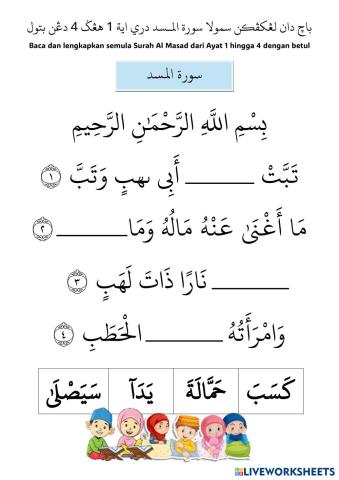 باچ دان لڠكڤكن سمولا سورة المسد دري اية 1 هڠݢ 4 دڠن بتول
Baca dan lengkapkan semula Surah Al Masad dari Ayat 1 hingga 4 dengan betul
سورة المسد
بِسْمِ اللَّهِ الرَّحْمَٰنِ الرَّحِيمِ
تَبَّتْ ______ أَبِى ىهبٍ وَتَبَّ ١
مَا أَغْنَىٰ عَنْهُ مَالُهُ وَمَا______ ٢
______ نَارًا ذَاتَ لَهَبٍ ٣
وَامْرَأَتُهُ ______ الْحَطَبِ ٤
كَسَبَ حَمَّالَةَ يَدَآ سَيَصْلَىٰ
LIVEWORKSHEETS